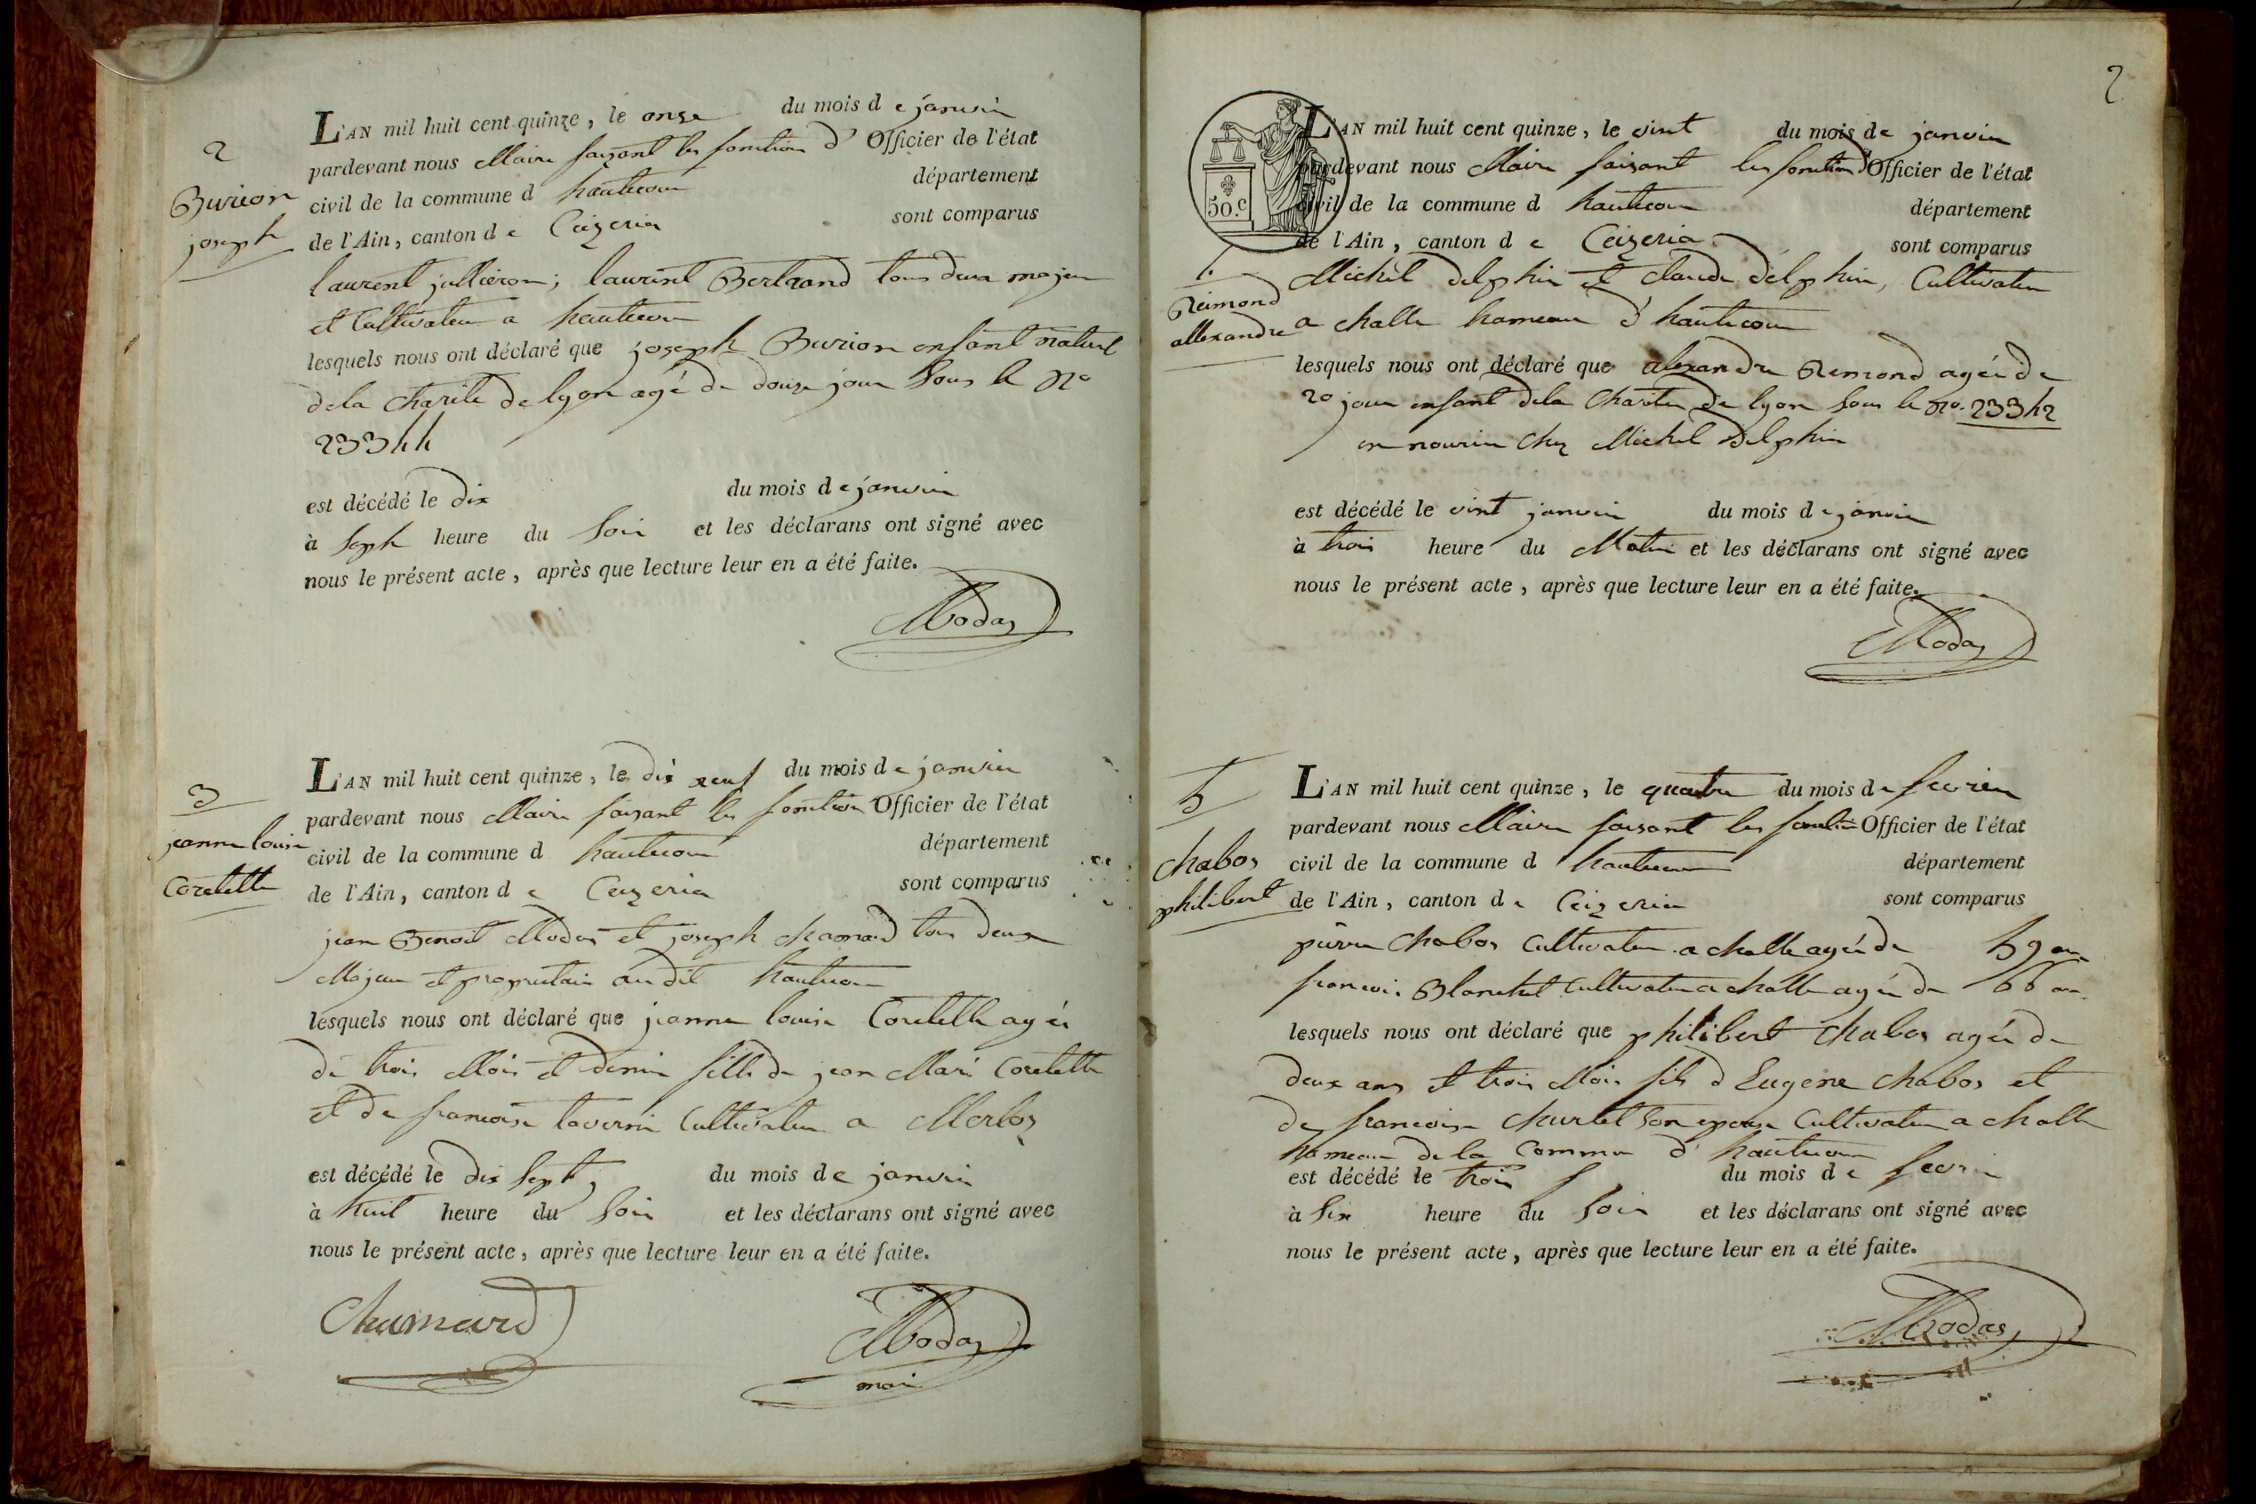 2
Burion
joseph
L'AN mil huit cent quinze, le onze du mois de janvier
pardevant nous Maire faisant les fonction d' Officier de l'état
civil de la commune d hautecour département
de l'Ain, canton de Ceizeria sont comparus
laurent jullieron; laurent Bertrand tous deux majeur
et Cultivateur a hautecour
lesquels nous ont déclaré que joseph Burion enfant naturel
de la charite de lyon agé de douze jour sous le No
23344
est décédé le dix du mois de janvier
à sept heure du soir et les déclarans ont signé avec
nous le présent acte, après que lecture leur en a été faite.
Modas
3
jeanne louise
Coretette
L'AN mil huit cent quinze, le dix neuf du mois de janvier
pardevant nous Maire faisant les fonction Officier de l'état
civil de la commune d hautecour département
de l'Ain, canton de Ceizeria sont comparus
jean Benoit Modas et joseph chamard tous deux
Majeur et proprietaire audit hautecour
lesquels nous ont déclaré que jeanne louise agée
de trois Mois et demie fille de jean Marie
et de francoise tavernier Cultivateur a Merloz
est décédé le dix sept du mois de janvier
à huit heure du soir et les déclarans ont signé avec
nous le présent acte, après que lecture leur en a été faite.
Chamard
Modas
maire
2
50.c
Reimond
allexandre
L'AN mil huit cent quinze, le vint du mois de janvier
pardevant nous Maire faisant les fonction d'Officier de l'état
civil de la commune d hautecour département
de l'Ain, canton de Ceizeria sont comparus
Michel delphin et claude delphin, Cultivateur
a challe hameau d'hautecour
lesquels nous ont déclaré que alexandre Remond agée de
20 jour enfant de la Charitee de lyon sous le No. 23342
en nourice chez Michel delphin
est décédé le vint janvier du mois de janvier
à trois heure du Matin et les déclarans ont signé avec
nous le présent acte, après que lecture leur en a été faite.
Modas
5
chabos
philibert
L'AN mil huit cent quinze, le quatre du mois de fevrier
pardevant nous Maire faisant les fonction Officier de l'état
civil de la commune d hautecour département
de l'Ain, canton de Ceizeria sont comparus
pierre chabos cultivateur a challe agée de 59 ans
francois Blanchet Cultivateur a challe agée de 66 ans
lesquels nous ont déclaré que philibert chabos agée de
deux ans et trois Mois fils d Eugene chabos et
de francoise son epouse Cultivateur a challe
hameau de la Commune d' hautecour
est décédé le trois du mois de fevrier
à six heure du soir et les déclarans ont signé avec
nous le présent acte, après que lecture leur en a été faite.
Modas